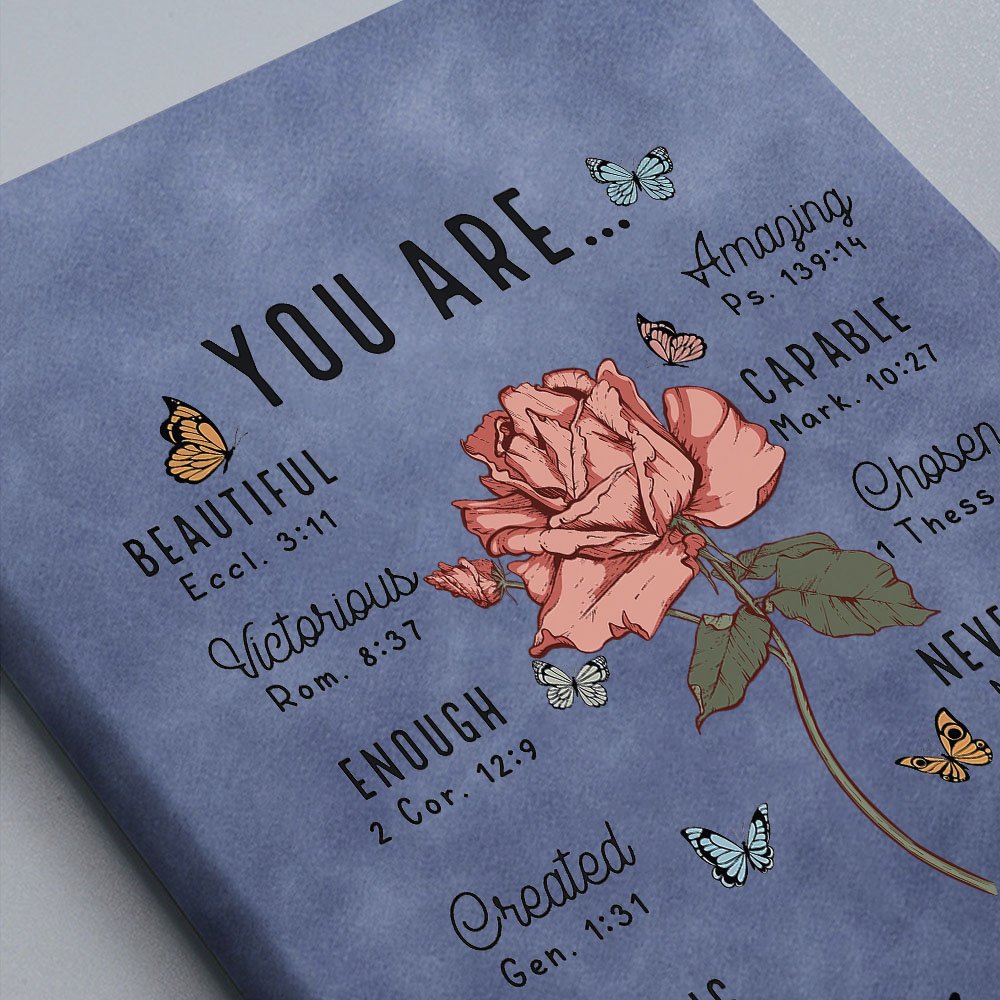 YOU ARE...
Amazing
Ps. 139:14
CAPABLE
Mark. 10:27
Chosen
1 Thess
BEAUTIFUL
Eccl. 3:11
Victorious
Rom. 8:37
ENOUGH
2 Cor. 12:9
Created
Gen. 1:31